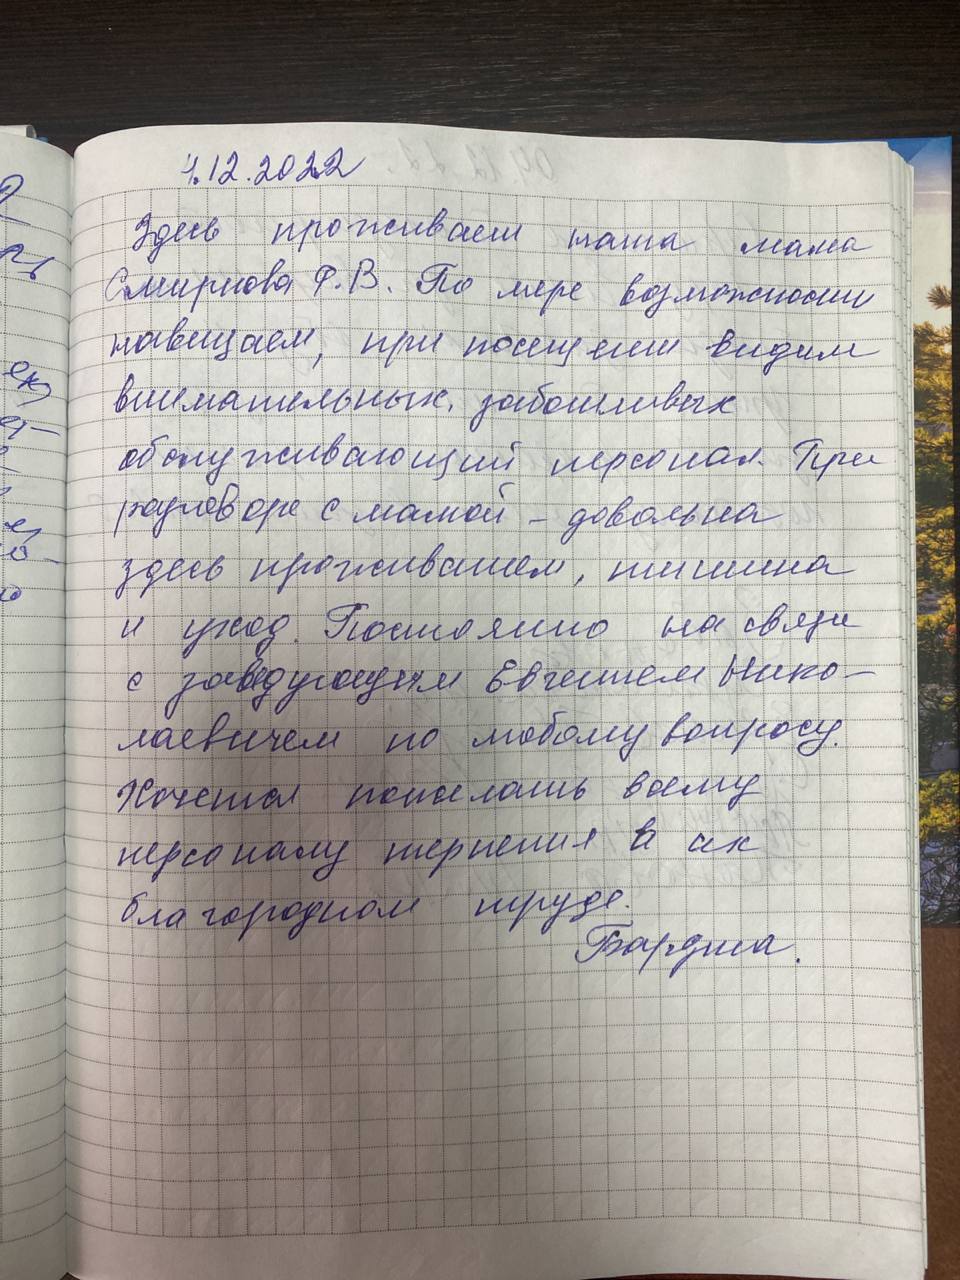 4.12.2022
Здесь проживает наша мама
Смирнова Ф.В. По мере возможности
навещаем, при посещении видим
внимательных, заботливых
обслуживающий персонал. При
разговоре с мамой – довольна
здесь проживанием, тишина
и уход. Постоянно на связи
с заведующим Евгением Нико-
лаевичем по любому вопросу.
Хочется пожелать всему
персоналу терпения в их
благородном труде.